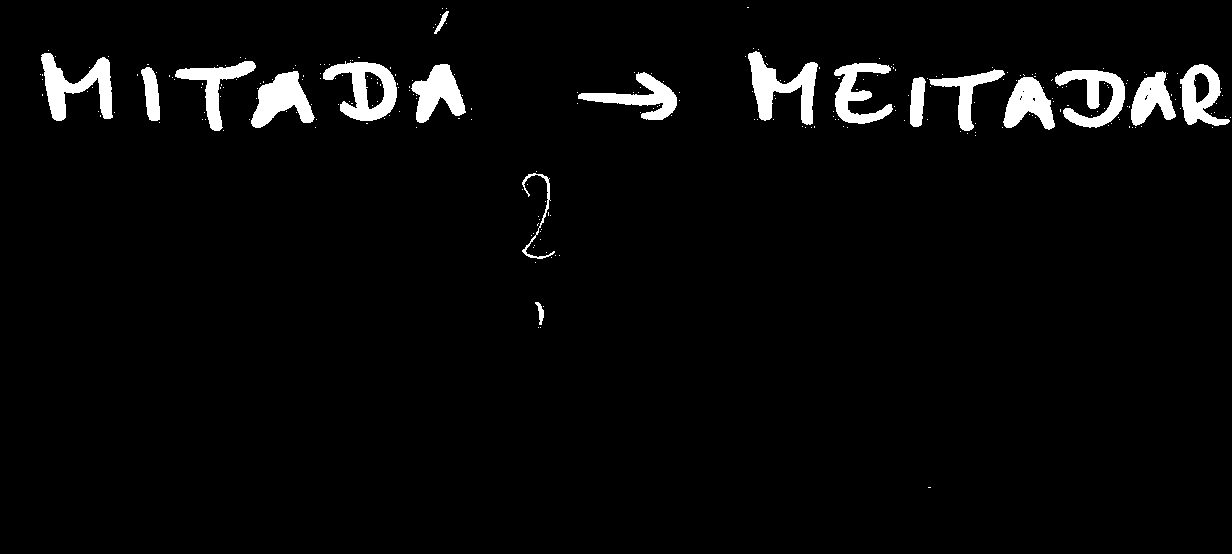 MITADÁ → MEITADAR
?